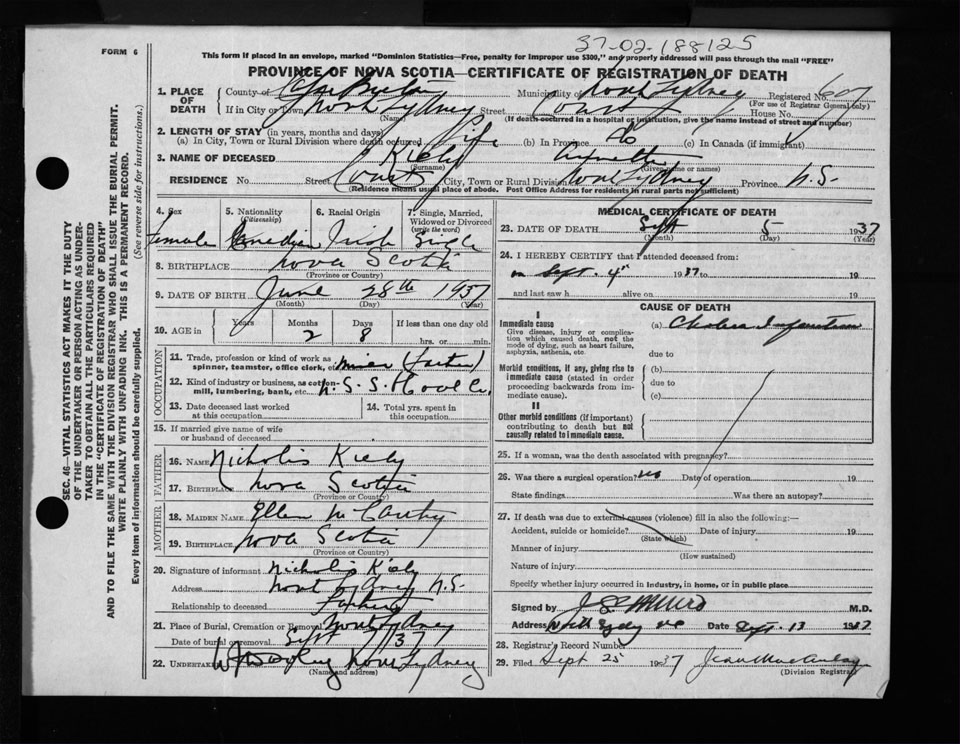 37-02-188125
FORM 6
This form if placed in an envelope, marked "Dominion Statistics—Free, penalty for improper use $300," and properly addressed will pass through the mail "FREE"
PROVINCE OF NOVA SCOTIA—CERTIFICATE OF REGISTRATION OF DEATH
1. PLACE OF DEATH County of Cape Breton Municipality of North Sydney Registered No. 607
(For use of Registrar General only)
If in City or Town North Sydney Street Court House No.
(Name) (If death occurred in a hospital or institution, give the name instead of street and number)
2. LENGTH OF STAY (in years, months and days)
(a) In City, Town or Rural Division where death occurred Life (b) In Province Do (c) In Canada (if immigrant)
3. NAME OF DECEASED Kiely
(Surname) (Given name or names)
RESIDENCE No. Street Court City, Town or Rural Division North Sydney Province N.S.
(Residence means usual place of abode. Post Office Address for Residents in rural parts not sufficient)
4. Sex 5. Nationality (Citizenship) 6. Racial Origin 7. Single, Married, Widowed or Divorced (write the word)
Female Canadian Irish Single
8. BIRTHPLACE Nova Scotia
(Province or Country)
9. DATE OF BIRTH June 28th 1937
(Month) (Day) (Year)
10. AGE in Years Months Days If less than one day old
2 8 hrs. or min.
OCCUPATION
11. Trade, profession or kind of work as spinner, teamster, office clerk, etc. Miner (Father)
12. Kind of industry or business, as cotton-mill, lumbering, bank, etc. N.S.S. & Coal Co.
13. Date deceased last worked at this occupation 14. Total yrs. spent in this occupation
15. If married give name of wife or husband of deceased
FATHER
16. NAME Nicholis Kiely
17. BIRTHPLACE Nova Scotia
(Province or Country)
MOTHER
18. MAIDEN NAME Ellen McCarthy
19. BIRTHPLACE Nova Scotia
(Province or Country)
20. Signature of informant Nicholis Kiely
Address North Sydney N.S.
Relationship to deceased Father
21. Place of Burial, Cremation or Removal North Sydney
Date of burial or removal Sept 37
22. UNDERTAKER North Sydney
(Name and address)
MEDICAL CERTIFICATE OF DEATH
23. DATE OF DEATH Sept 5 1937
(Month) (Day) (Year)
24. I HEREBY CERTIFY that I attended deceased from:
on Sept. 4th 1937 to 19
and last saw h alive on 19
CAUSE OF DEATH
I
Immediate cause (a) Cholera Infantum
Give disease, injury or complication which caused death, not the mode of dying, such as heart failure, asphyxia, asthenia, etc.
due to
Morbid conditions, if any, giving rise to immediate cause (stated in order proceeding backwards from immediate cause).
(b)
due to
(c)
II
Other morbid conditions (if important) contributing to death but not causally related to immediate cause.
25. If a woman, was the death associated with pregnancy?
26. Was there a surgical operation? no Date of operation 19
State findings Was there an autopsy?
27. If death was due to external causes (violence) fill in also the following:—
Accident, suicide or homicide? Date of injury 19
(State which)
Manner of injury
(How sustained)
Nature of injury
Specify whether injury occurred in industry, in home, or in public place
Signed by Munro M.D.
Address North Sydney NS Date Sept. 13 1937
28. Registrar's Record Number
29. Filed Sept 25 1937 Jean MacAulay
(Division Registrar)
SEC. 46—VITAL STATISTICS ACT MAKES IT THE DUTY
OF THE UNDERTAKER OR PERSON ACTING AS UNDER-
TAKER TO OBTAIN ALL THE PARTICULARS REQUIRED
IN THE "CERTIFICATE OF REGISTRATION OF DEATH"
AND TO FILE THE SAME WITH THE DIVISION REGISTRAR WHO SHALL ISSUE THE BURIAL PERMIT.
WRITE PLAINLY WITH UNFADING INK. THIS IS A PERMANENT RECORD.
Every item of information should be carefully supplied. (See reverse side for instructions.)